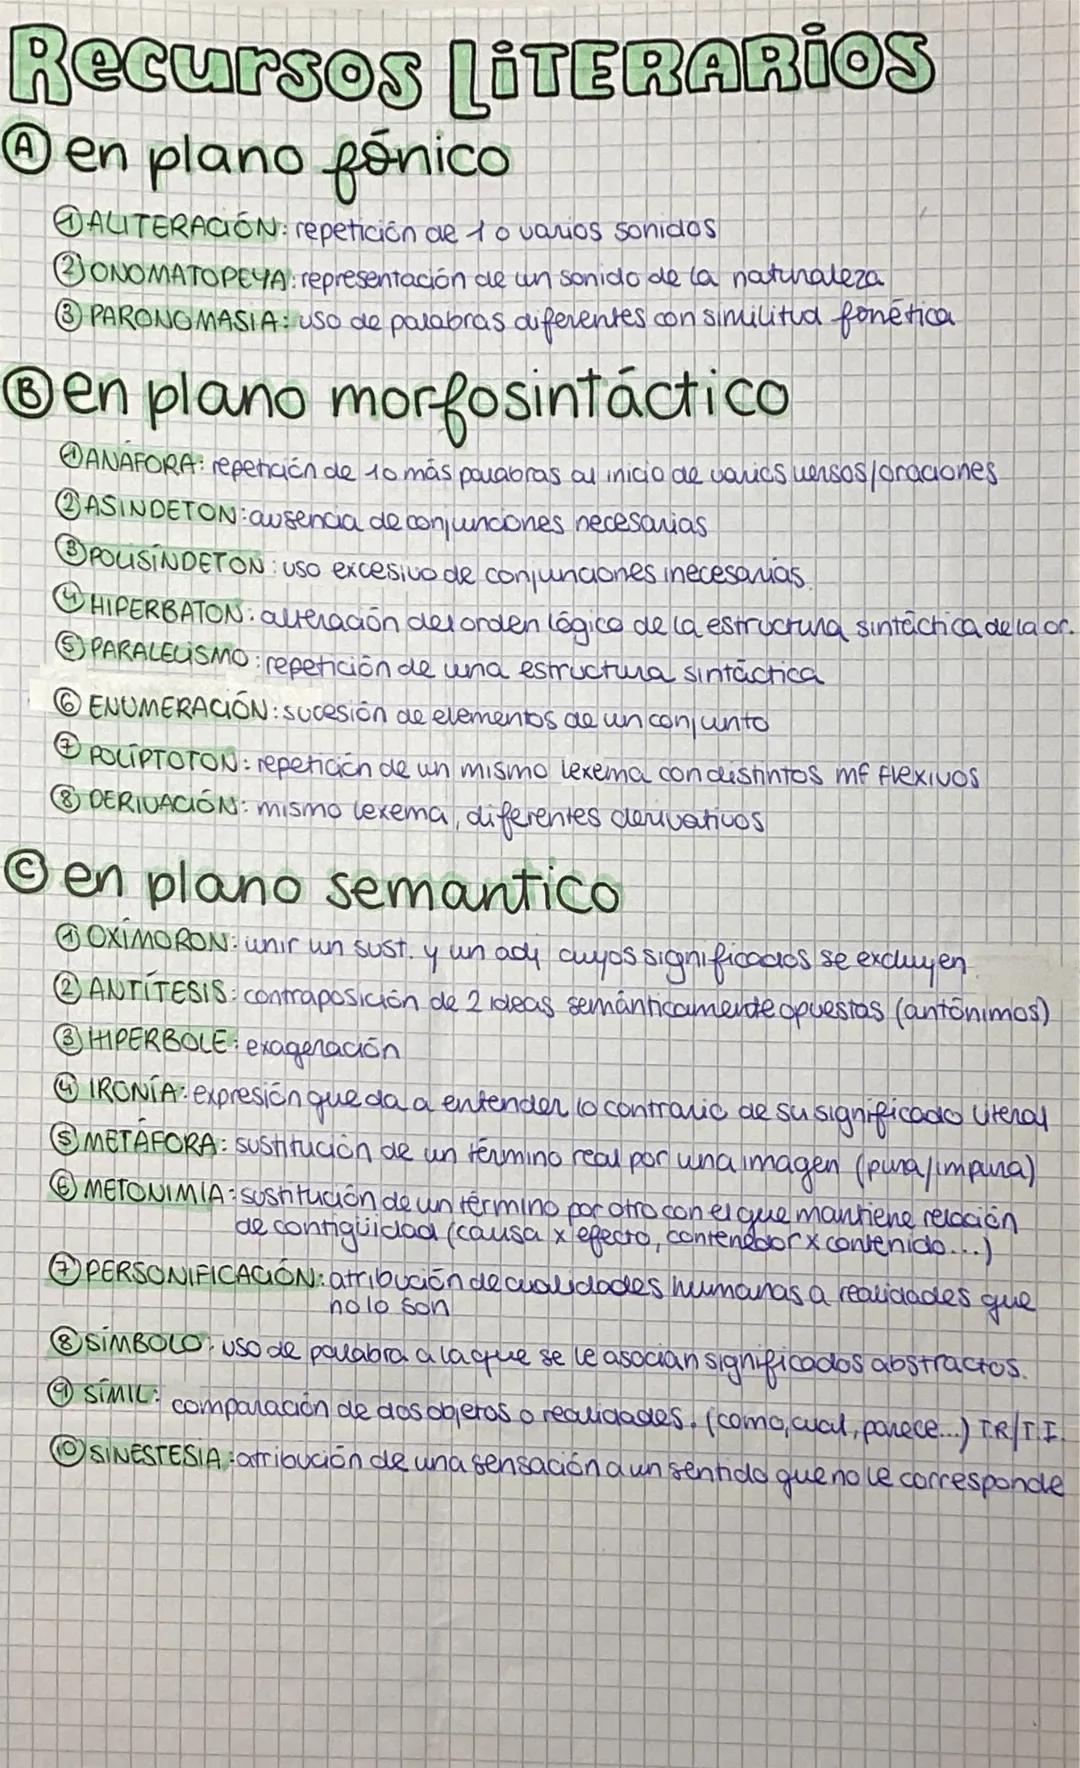 Recursos LiTERARiOS
Ⓐ en plano fónico
① ALITERACIÓN: repetición de 1 o varios sonidos
② ONOMATOPEYA: representación de un sonido de la naturaleza
③ PARONOMASIA: uso de palabras diferentes con similitud fonética
Ⓑ en plano morfosintáctico
① ANÁFORA: repetición de 1 o más palabras al inicio de varios versos/oraciones
② ASÍNDETON: ausencia de conjunciones necesarias
③ POLISÍNDETON: uso excesivo de conjunciones inecesarias.
④ HIPERBATON: alteración del orden lógico de la estructura sintáctica de la or.
⑤ PARALELISMO: repetición de una estructura sintáctica
⑥ ENUMERACIÓN: sucesión de elementos de un conjunto
⑦ POLÍPTOTON: repetición de un mismo lexema con distintos mf flexivos
⑧ DERIVACIÓN: mismo lexema, diferentes derivativos
Ⓒ en plano semantico
① OXÍMORON: unir un sust. y un adj cuyos significados se excluyen.
② ANTÍTESIS: contraposición de 2 ideas semánticamente opuestas (antónimos)
③ HIPERBOLE: exageración
④ IRONÍA: expresión que da a entender lo contrario de su significado literal
⑤ METÁFORA: sustitución de un término real por una imagen (pura/impura)
⑥ METONIMIA: sustitución de un término por otro con el que mantiene relación
de contigüidad (causa x efecto, contenedor x contenido...)
⑦ PERSONIFICACIÓN: atribución de cualidades humanas a realidades que
no lo son
⑧ SÍMBOLO: uso de palabra a la que se le asocian significados abstractos.
⑨ SÍMIL: comparación de dos objetos o realidades. (como, cual, parece...) T.R/T.I.
⑩ SINESTESIA: atribución de una sensación a un sentido que no le corresponde